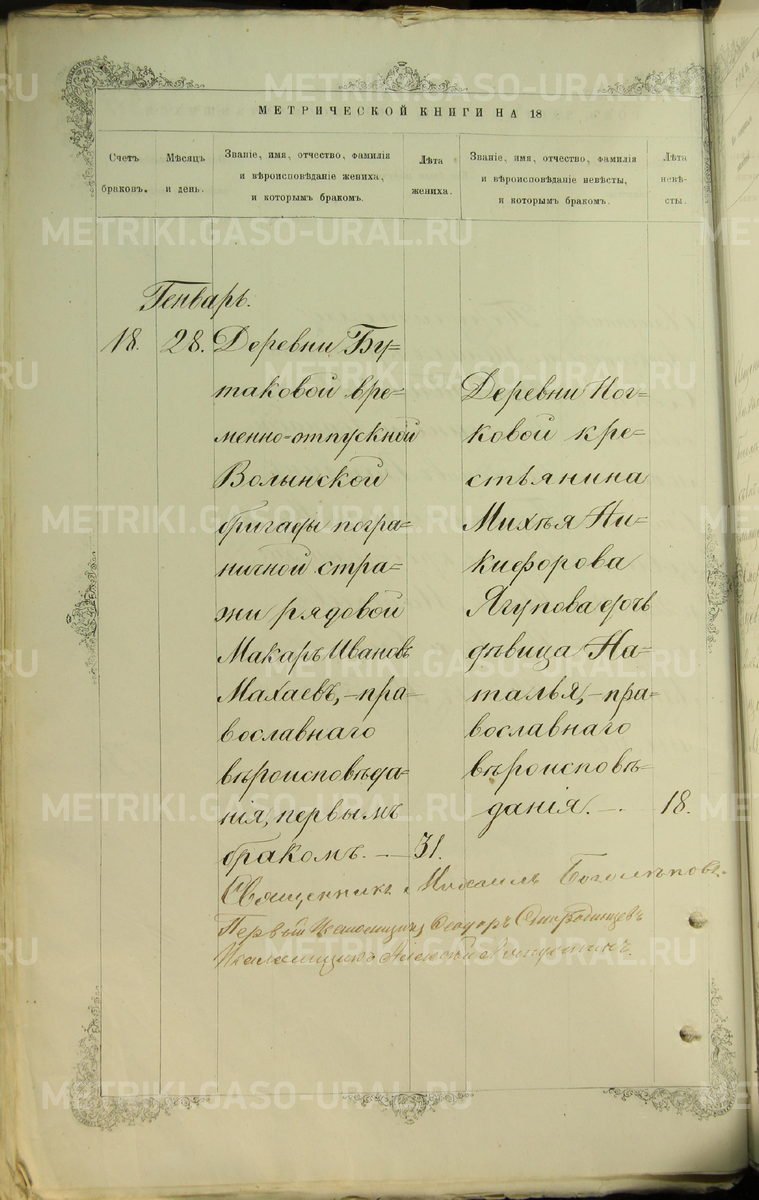 МЕТРИЧЕСКОЙ КНИГИ НА 18
Счетъ браковъ.
Мѣсяцъ и день.
Званіе, имя, отчество, фамилія и вѣроисповѣданіе жениха, и которымъ бракомъ.
Лѣта жениха.
Званіе, имя, отчество, фамилія и вѣроисповѣданіе невѣсты, и которымъ бракомъ.
Лѣта невѣ-сты.
Генварь.
18.
28.
Деревни Бу=
таковой вре=
менно-отпускной
Волынской
бригады погра=
ничной стра=
жи рядовой
Макаръ Ивановъ
Махаевъ, – пра=
вославнаго
вѣроисповѣда=
нія, первымъ
бракомъ. —
31.
Деревни
ковой кре=
стьянина
Михѣя Ни=
кифорова
Ягупова дочь
дѣвица На=
талья, – пра=
вославнаго
вѣроисповѣ=
данія. – .
18.
Священникъ Михаилъ Боголѣповъ.
Первый Псаломщикъ Ѳеодоръ
Псаломщикъ Алексѣй
METRIKI.GASO-URAL.RU